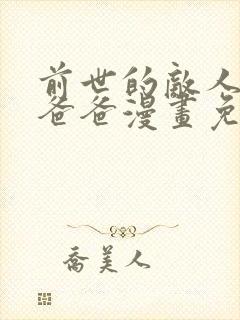 前世的敵人
爸爸漫畫免
喬美人